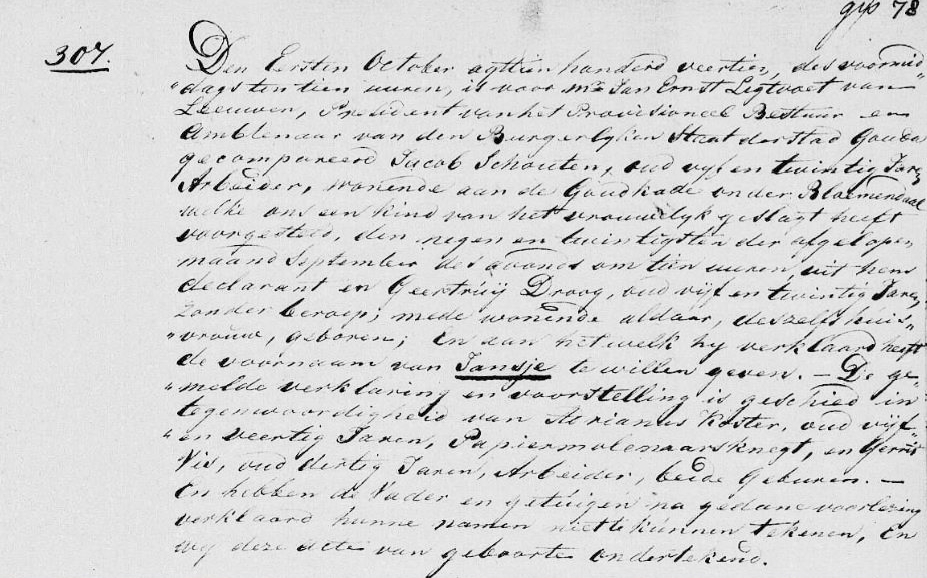 78
307.
Den Eersten October agttien honderd veertien, des voormid„
„dags ten tien uuren, is voor mr Jan Ernst Ligtvoet van
Leeuwen, President van het Provisioneel Bestuur en
Ambtenaar van den Burgerlyken Staat der stad Gouda
gecompareerd Jacob Schouten, oud vyf en twintig Jaren
Arbeider, wonende aan de Goudkade onder Bloemendaal
welke ons een kind van het vrouwelyk geslagt heeft
voorgesteld, den negen en twintigsten der afgelopen
maand September des avonds om tien uuren, uit hem
declarant en Geertruij Droog, oud vijf en twintig Jaren,
zonder beroep; mede wonende aldaar, deszelfs huis„
„vrouw, geboren; En aan het welk hy verklaard heeft
de voornaam van Jansje te willen geven. – De ge„
„melde verklaring en voorstelling is geschied in
tegenwoordigheid van Adrianus Koster, oud vijf„
„en veertig Jaren, Papiermolenaarsknegt, en Gerrit
Vis, oud dertig Jaren, Arbeider, beide Geburen. –
En hebben de Vader en getuigen na gedane voorlezing
verklaard hunne namen niet te kunnen tekenen, En
wy deze acte van geboorte ondertekend.